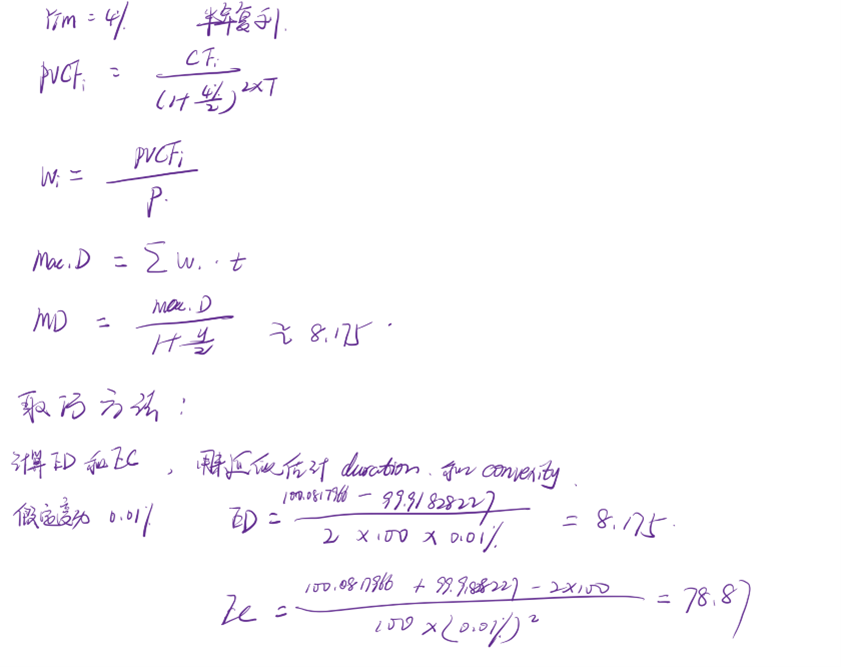 ytm = 4% 半年复利.
PVCFi = CFi / (1+ 4%/2)^2×T
Wi = PVCFi / P.
Mac.D = Σ Wi · t
MD = mac.D / 1+ y/2 ≈ 8.175.
取巧方法:
计算ED和EC, 用来近似估计 duration. 和 convexity.
假定变动为 0.01% ED = 100.0817966 - 99.91828227 / 2 × 100 × 0.01% = 8.175.
EC = 100.0817966 + 99.91828227 - 2×100 / 100 × (0.01%)^2 = 78.87